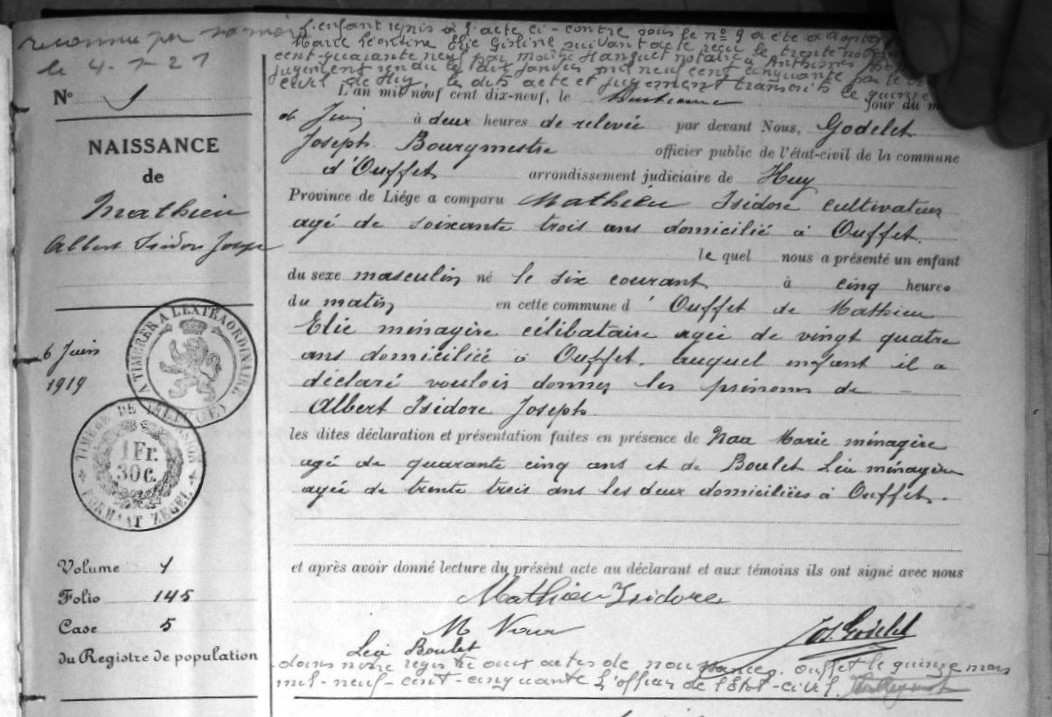 reconnu par sa mère
le 4-7-21
l'enfant repris à l'acte ci-contre sous le n° 9 a été adopté
Marie Léontine Elie Gisline suivant acte reçu le trente
cent-quarante neuf par maître Hanquet notaire à Anthisnes
jugement rendu le dix Janvier mil neuf cent cinquante par le
civil de Huy, les dits acte et jugement transcrits le quinze
N°
L'an mil neuf cent dix-neuf, le jour du m
de Juin à deux heures de relevée par devant Nous, Godelet
NAISSANCE
Joseph Bourgmestre officier public de l'état-civil de la commune
de
d'Ouffet arrondissement judiciaire de Huy
Mathieu
Province de Liége a comparu Mathieu Isidore cultivateur
Albert Isidore Joseph
agé de soixante trois ans domicilié à Ouffet.
le quel nous a présenté un enfant
du sexe masculin né le six courant à cinq heures
du matin en cette commune d'Ouffet de Mathieu
Elie ménagère célibataire agée de vingt quatre
ans domiciliée à Ouffet. auquel enfant il a
déclaré vouloir donner les prénoms de -
Albert Isidore Joseph
6 Juin
1919
A TIMBRER A L'EXTRAORDINAIRE
TIMBRE DE DIMENSION
1 Fr.
30 C.
FORMAAT ZEGEL
les dites déclaration et présentation faites en présence de Naa Marie ménagère
agé de quarante cinq ans et de Boulet Léa ménagère
agée de trente trois ans les deux domiciliées à Ouffet.
Volume 1
et après avoir donné lecture du présent acte au déclarant et aux témoins ils ont signé avec nous
Folio 145
Mathieu Isidore
Case 5
M Naa
Jos. Godelet
du Registre de population
Léa Boulet
dans notre registre aux actes de naissance. Ouffet le quinze mars
mil-neuf-cent-cinquante L'officier de l'Etat-civil,